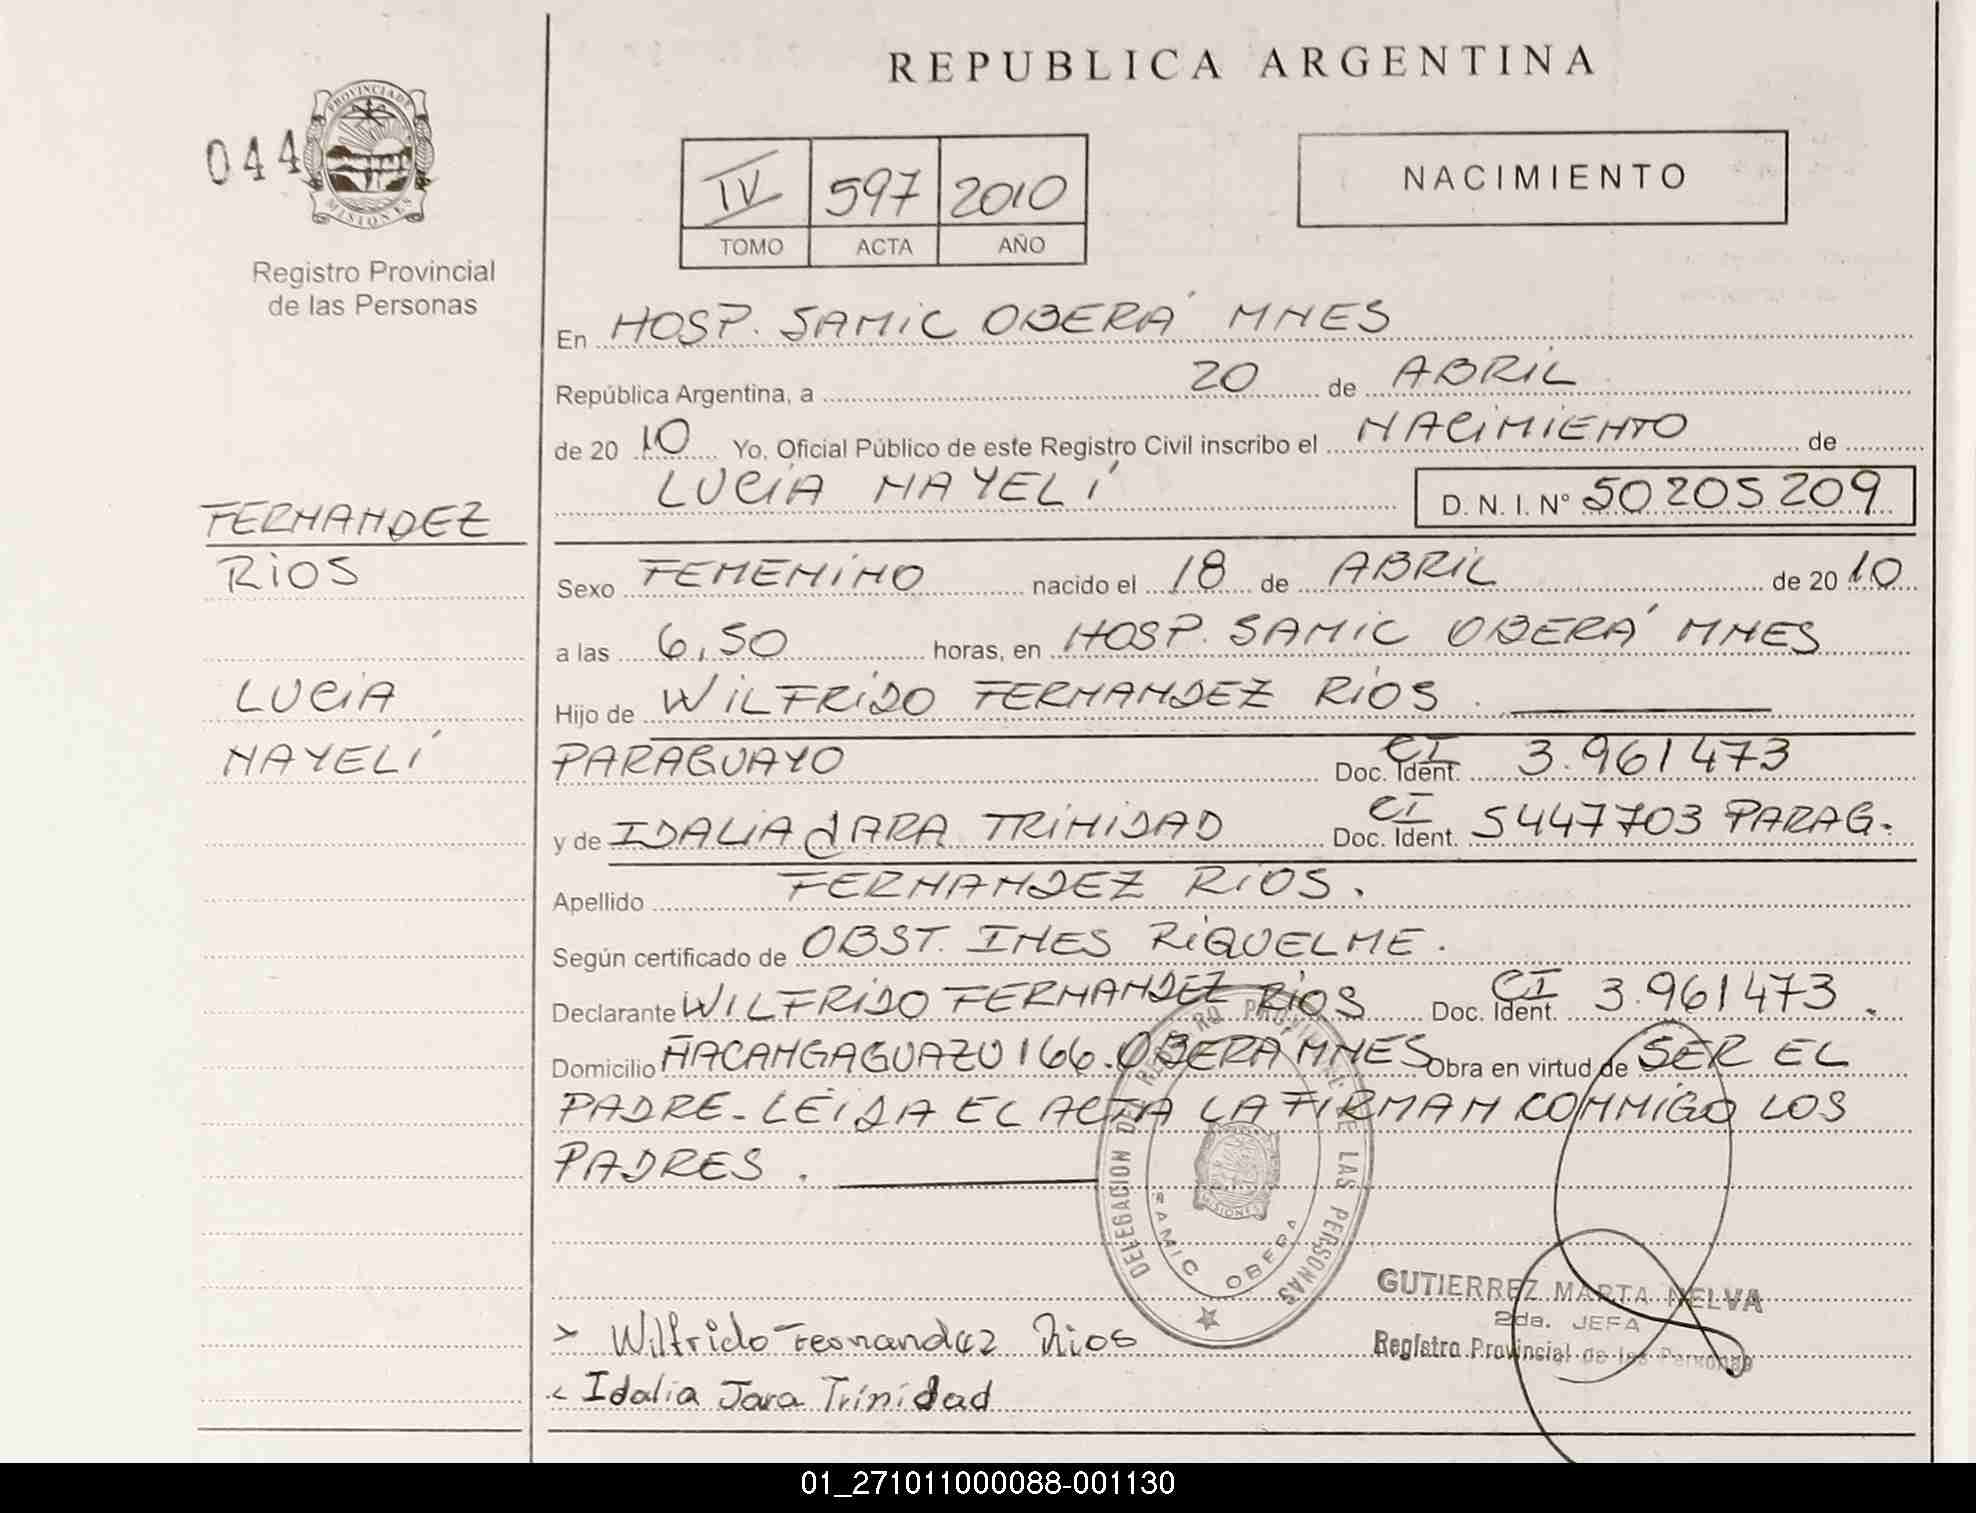 REPUBLICA ARGENTINA
044
PROVINCIA DE
MISIONES
Registro Provincial
de las Personas
IV 597 2010
TOMO ACTA AÑO
NACIMIENTO
En HOSP. SAMIC OBERÁ MNES
República Argentina, a 20 de ABRIL
de 20 10 Yo, Oficial Público de este Registro Civil inscribo el NACIMIENTO de
LUCIA NAYELÍ D. N. I. N° 50205209
FERNANDEZ
RIOS
LUCIA
NAYELÍ
Sexo FEMENINO nacido el 18 de ABRIL de 20 10
a las 6,50 horas, en HOSP. SAMIC OBERÁ MNES
Hijo de WILFRIDO FERNANDEZ RIOS.
PARAGUAYO Doc. Ident. CI 3.961473
y de IDALIA JARA TRINIDAD Doc. Ident. CI 5447703 PARAG.
Apellido FERNANDEZ RIOS.
Según certificado de OBST. INES RIQUELME.
Declarante WILFRIDO FERNANDEZ RIOS Doc. Ident. CI 3.961473.
Domicilio ÑACANGAGUAZU 166. OBERÁ MNES Obra en virtud de SER EL
PADRE - LEIDA EL ACTA LA FIRMAN CONMIGO LOS
PADRES.
DELEGACION DEL REGISTRO PROVINCIAL DE LAS PERSONAS
SAMIC OBERA
MISIONES
GUTIERREZ MARTA NELVA
2da. JEFA
Registro Provincial de las Personas
Wilfrido Fernandez Rios
Idalia Jara Trinidad
01_271011000088-001130